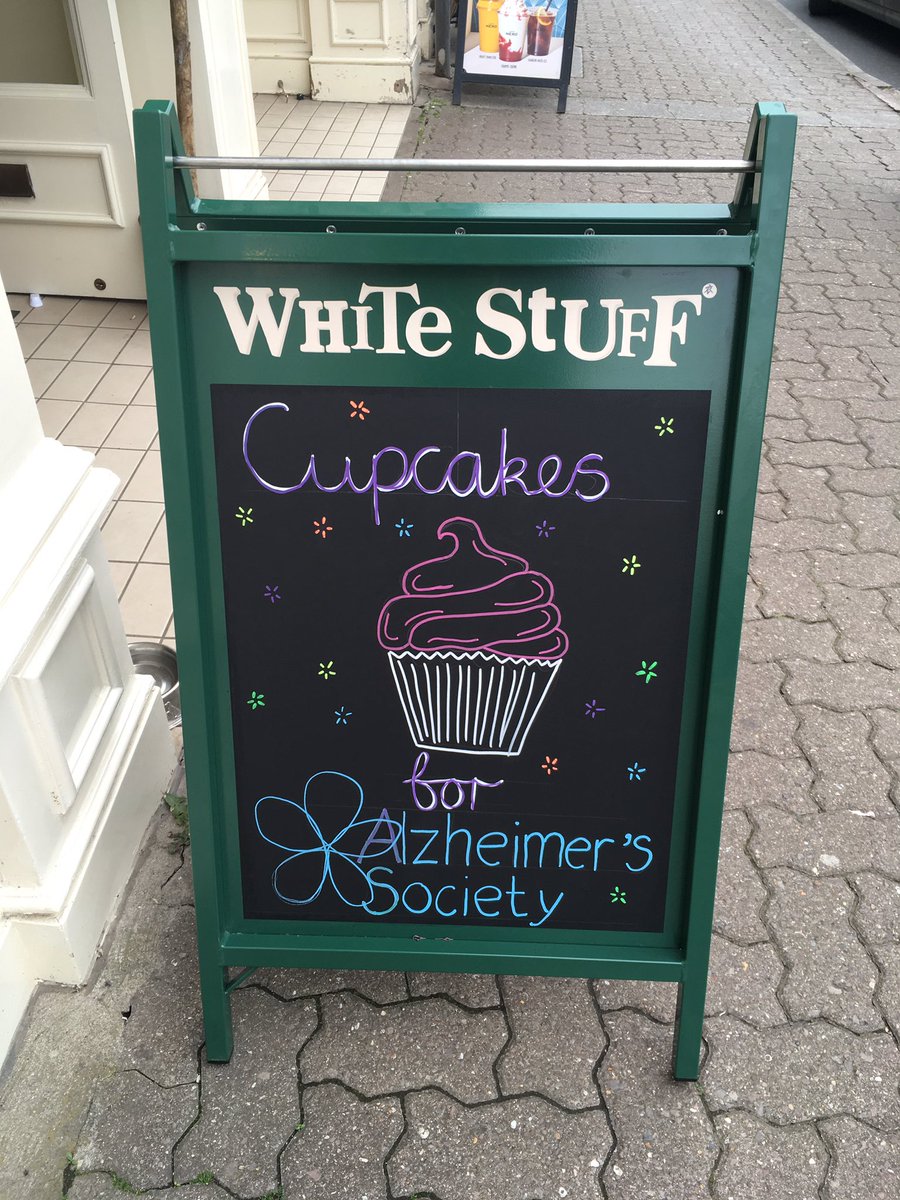 WHiTe StUFF
Cupcakes
for
Alzheimer's
Society